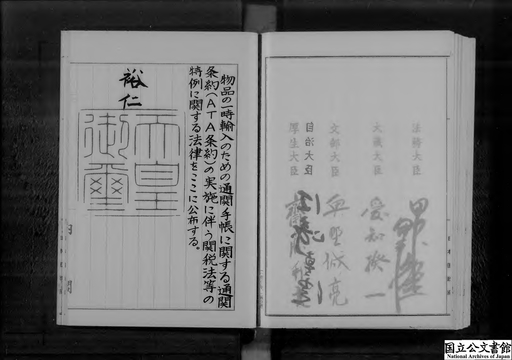 物品の一時輸入のための通関手帳に関する通関
条約(ATA条約)の実施に伴う関税法等の
特例に関する法律をここに公布する。
裕仁
天皇
御璽
法務大臣
大蔵大臣
愛知揆一
文部大臣
自治大臣
厚生大臣
国立公文書館
National Archives of Japan